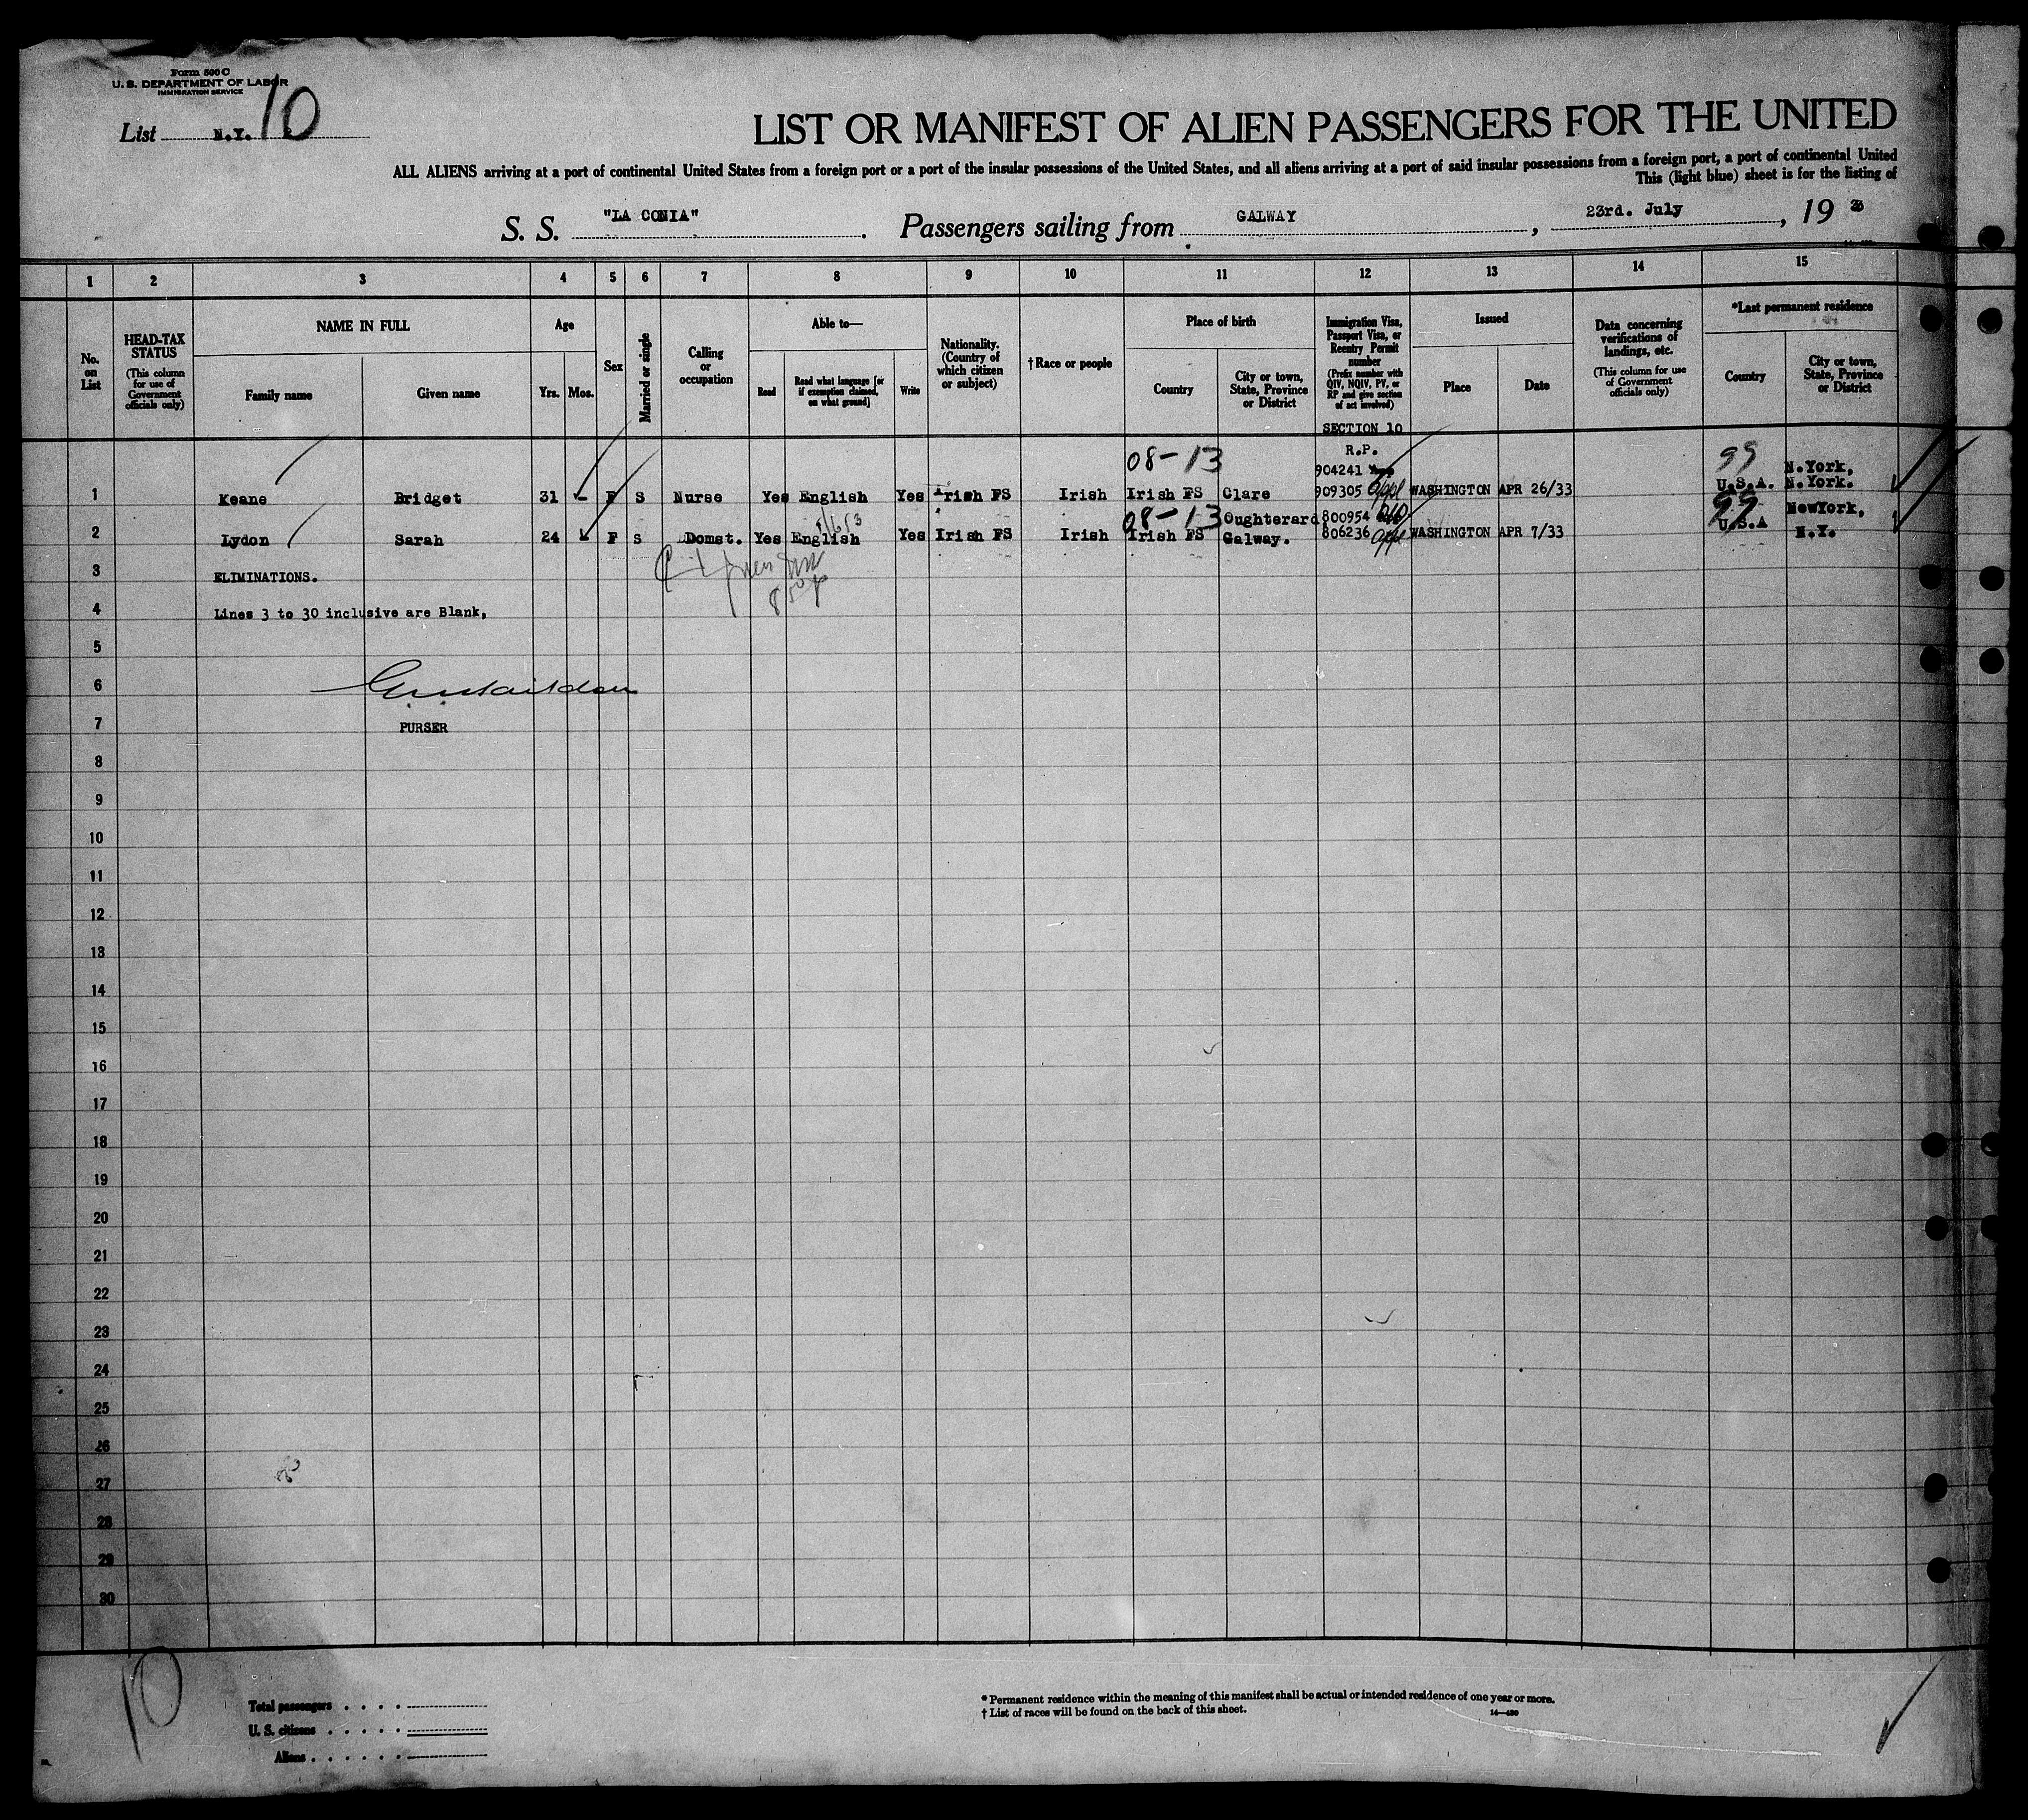 Form 500 C
U. S. DEPARTMENT OF LABOR
IMMIGRATION SERVICE
List N.Y. 10
LIST OR MANIFEST OF ALIEN PASSENGERS FOR THE UNITED
ALL ALIENS arriving at a port of continental United States from a foreign port or a port of the insular possessions of the United States, and all aliens arriving at a port of said insular possessions from a foreign port, a port of continental United
This (light blue) sheet is for the listing of
S. S. "LA CONIA". Passengers sailing from GALWAY, 23rd. July, 19
1 2 3 4 5 6 7 8 9 10 11 12 13 14 15
No. on List
HEAD-TAX STATUS
(This column for use of Government officials only)
NAME IN FULL
Family name
Given name
Age
Yrs. Mos.
Sex
Married or single
Calling or occupation
Able to—
Read
Read what language [or if exemption claimed, on what ground]
Write
Nationality. (Country of which citizen or subject)
† Race or people
Place of birth
Country
City or town, State, Province or District
Immigration Visa, Passport Visa, or Reentry Permit number
(Prefix number with QIV, NQIV, PV, or RP and give section of act involved)
SECTION 10
Issued
Place
Date
Data concerning verifications of landings, etc.
(This column for use of Government officials only)
*Last permanent residence
Country
City or town, State, Province or District
08-13 R.P. 99 N.York,
904241
1 Keane Bridget 31 - F S Nurse Yes English Yes Irish FS Irish Irish FS Clare 909305 appl WASHINGTON APR 26/33 U.S.A. N.York.
08-13 Oughterard 800954 99 NewYork,
2 Lydon Sarah 24 F S Domst. Yes English Yes Irish FS Irish Irish FS Galway. 806236 appl WASHINGTON APR 7/33 U.S.A N.Y.
3 ELIMINATIONS.
4 Lines 3 to 30 inclusive are Blank,
5
6
7 PURSER
8
9
10
11
12
13
14
15
16
17
18
19
20
21
22
23
24
25
26
27
28
29
30
10
Total passengers
U. S. citizens
Aliens
* Permanent residence within the meaning of this manifest shall be actual or intended residence of one year or more.
† List of races will be found on the back of this sheet.
14—430